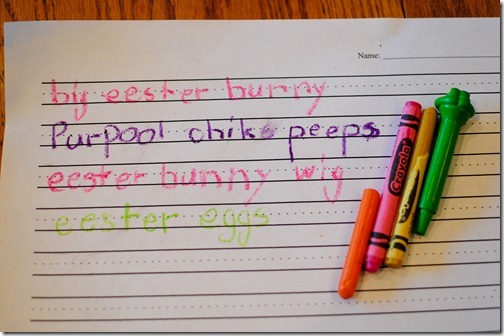 Name:
big eester bunny
Purpool chiks peeps
eester bunny wig
eester eggs
Crayola